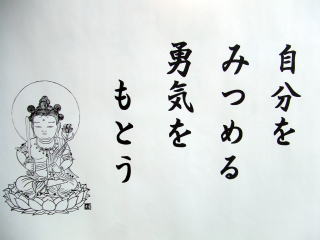 自分を
みつめる
勇気を
もとう